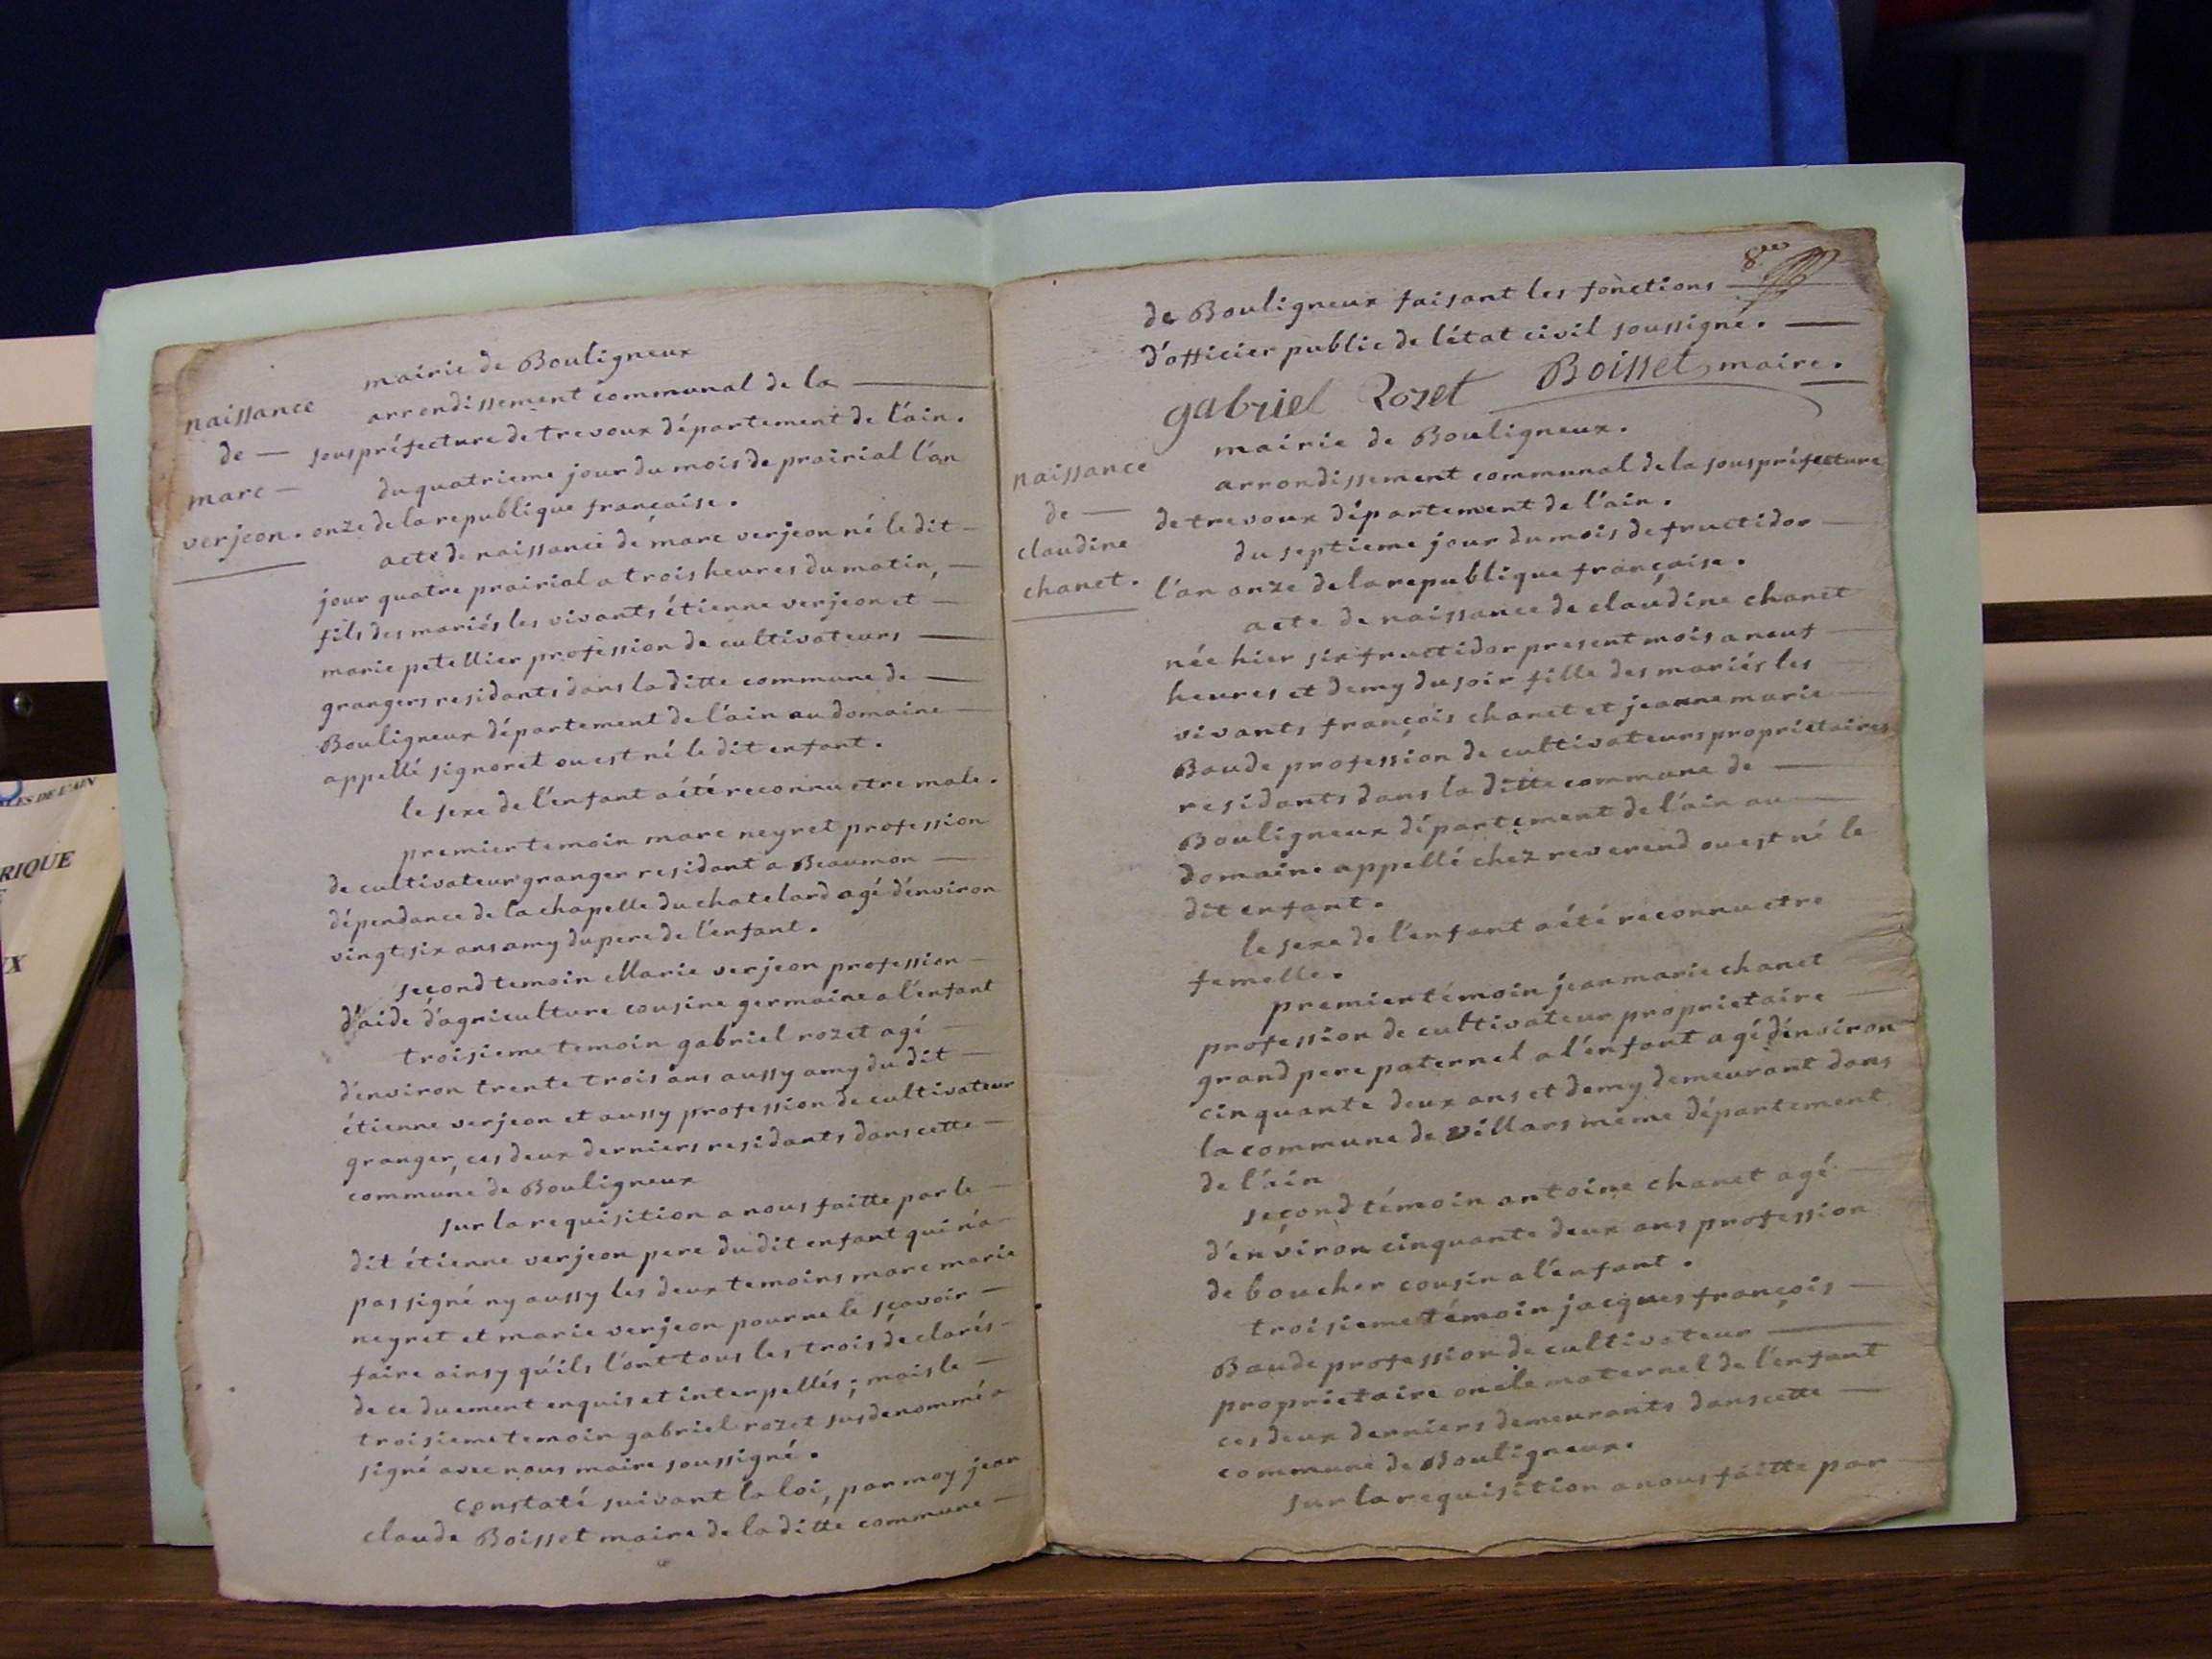 mairie de Bouligneux
naissance
de —
marc —
verjeon.
arrondissement communal de la —
souspréfecture de trevoux département de l'ain.
du quatrieme jour du mois de prairial l'an
onze de la republique française.
acte de naissance de marc verjeon né le dit —
jour quatre prairial a trois heures du matin, —
fils des mariés les vivants étienne verjeon et —
marie petellier profession de cultivateurs —
grangers residants dans la ditte commune de —
Bouligneux département de l'ain au domaine —
appellé signoret ou est né le dit enfant.
le sexe de l'enfant a été reconnu etre male.
premier temoin marc neyret profession
de cultivateur granger residant a Beaumon —
dépendance de la chapelle du chatelard agé d'environ
vingt six ans amy du pere de l'enfant.
second temoin Marie verjeon profession —
d'aide d'agriculture cousine germaine a l'enfant
troisieme temoin gabriel rozet agé —
d'environ trente trois ans aussy amy du dit —
étienne verjeon et aussy profession de cultivateur
granger, ces deux derniers residants dans cette —
commune de Bouligneux
sur la requisition a nous faitte par le —
dit étienne verjeon pere du dit enfant qui n'a —
pas signé ny aussy les deux temoins marc marie
neyret et marie verjeon pour ne le sçavoir —
faire ainsy qu'ils l'ont tous les trois declarés —
de ce duement enquis et interpellés; mais le —
troisieme temoin gabriel rozet susdenommé a
signé avec nous maire soussigné.
constaté suivant la loi, par moy jean
claude Boisset maire de la ditte commune —
8
de Bouligneux faisant les fonctions —
d'officier public de l'état civil soussigné. —
gabriel Rozet Boisset, maire.
mairie de Bouligneux.
naissance
de —
claudine
chanet.
arrondissement communal de la souspréfecture
de trevoux département de l'ain.
du septieme jour du mois de fructidor —
l'an onze de la republique française.
acte de naissance de claudine chanet
née hier six fructidor present mois a neuf —
heures et demy du soir fille des mariés les —
vivants françois chanet et jeanne marie —
Baude profession de cultivateurs proprietaires
residants dans la ditte commune de —
Bouligneux département de l'ain au —
domaine appellé chez reverend ou est né le
dit enfant.
le sexe de l'enfant a été reconnu etre
femelle.
premier témoin jean marie chanet
profession de cultivateur proprietaire —
grand pere paternel a l'enfant agé d'environ
cinquante deux ans et demy demeurant dans
la commune de villars meme département
de l'ain
second témoin antoine chanet agé —
d'environ cinquante deux ans profession
de boucher cousin a l'enfant.
troisieme témoin jacques françois —
Baude profession de cultivateur —
proprietaire oncle maternel de l'enfant
ces deux derniers demeurants dans cette —
commune de Bouligneux.
sur la requisition a nous faitte par
LES DE L'AIN
RIQUE